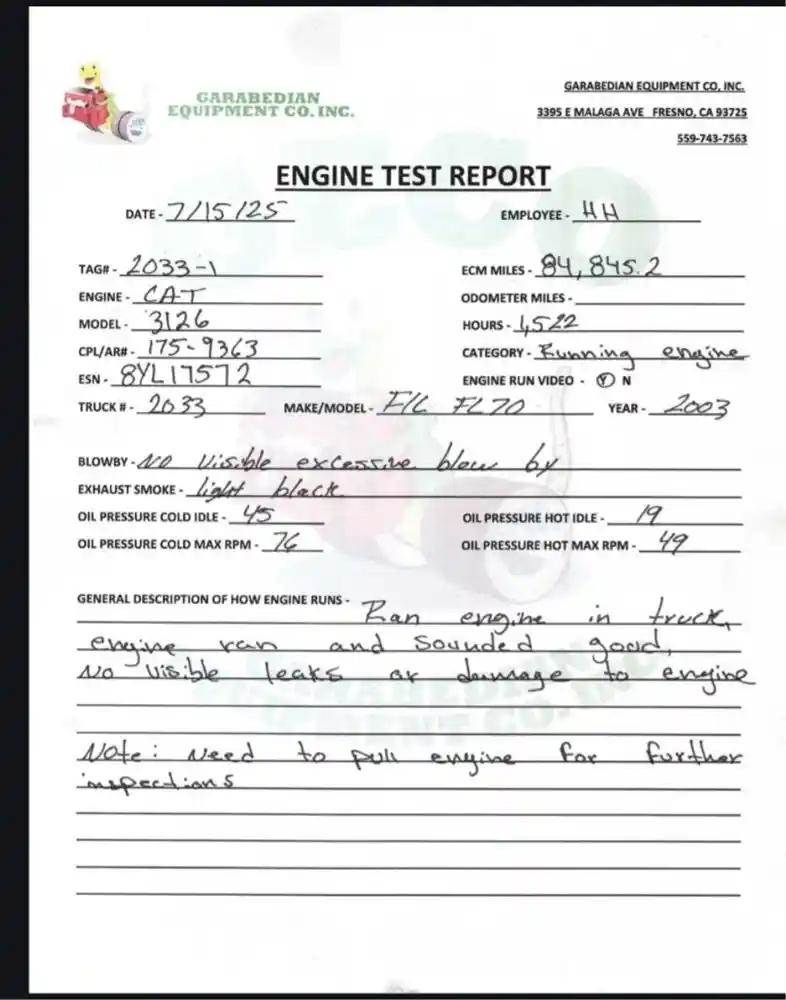 GARABEDIAN
EQUIPMENT CO. INC.
GARABEDIAN EQUIPMENT CO, INC.
3395 E MALAGA AVE FRESNO, CA 93725
559-743-7563
ENGINE TEST REPORT
DATE - 7/15/25 EMPLOYEE - HH
TAG# - 2033-1 ECM MILES - 84,845.2
ENGINE - CAT ODOMETER MILES -
MODEL - 3126 HOURS - 1,522
CPL/AR# - 175-9363 CATEGORY - Running engine
ESN - 8YL17572 ENGINE RUN VIDEO - Y N
TRUCK # - 2033 MAKE/MODEL - F/L FL70 YEAR - 2003
BLOWBY - NO Visible excessive blow by
EXHAUST SMOKE - light black
OIL PRESSURE COLD IDLE - 45 OIL PRESSURE HOT IDLE - 19
OIL PRESSURE COLD MAX RPM - 76 OIL PRESSURE HOT MAX RPM - 49
GENERAL DESCRIPTION OF HOW ENGINE RUNS - Ran engine in truck,
engine ran and sounded good,
NO visible leaks or damage to engine
Note: Need to pull engine for further
inspections